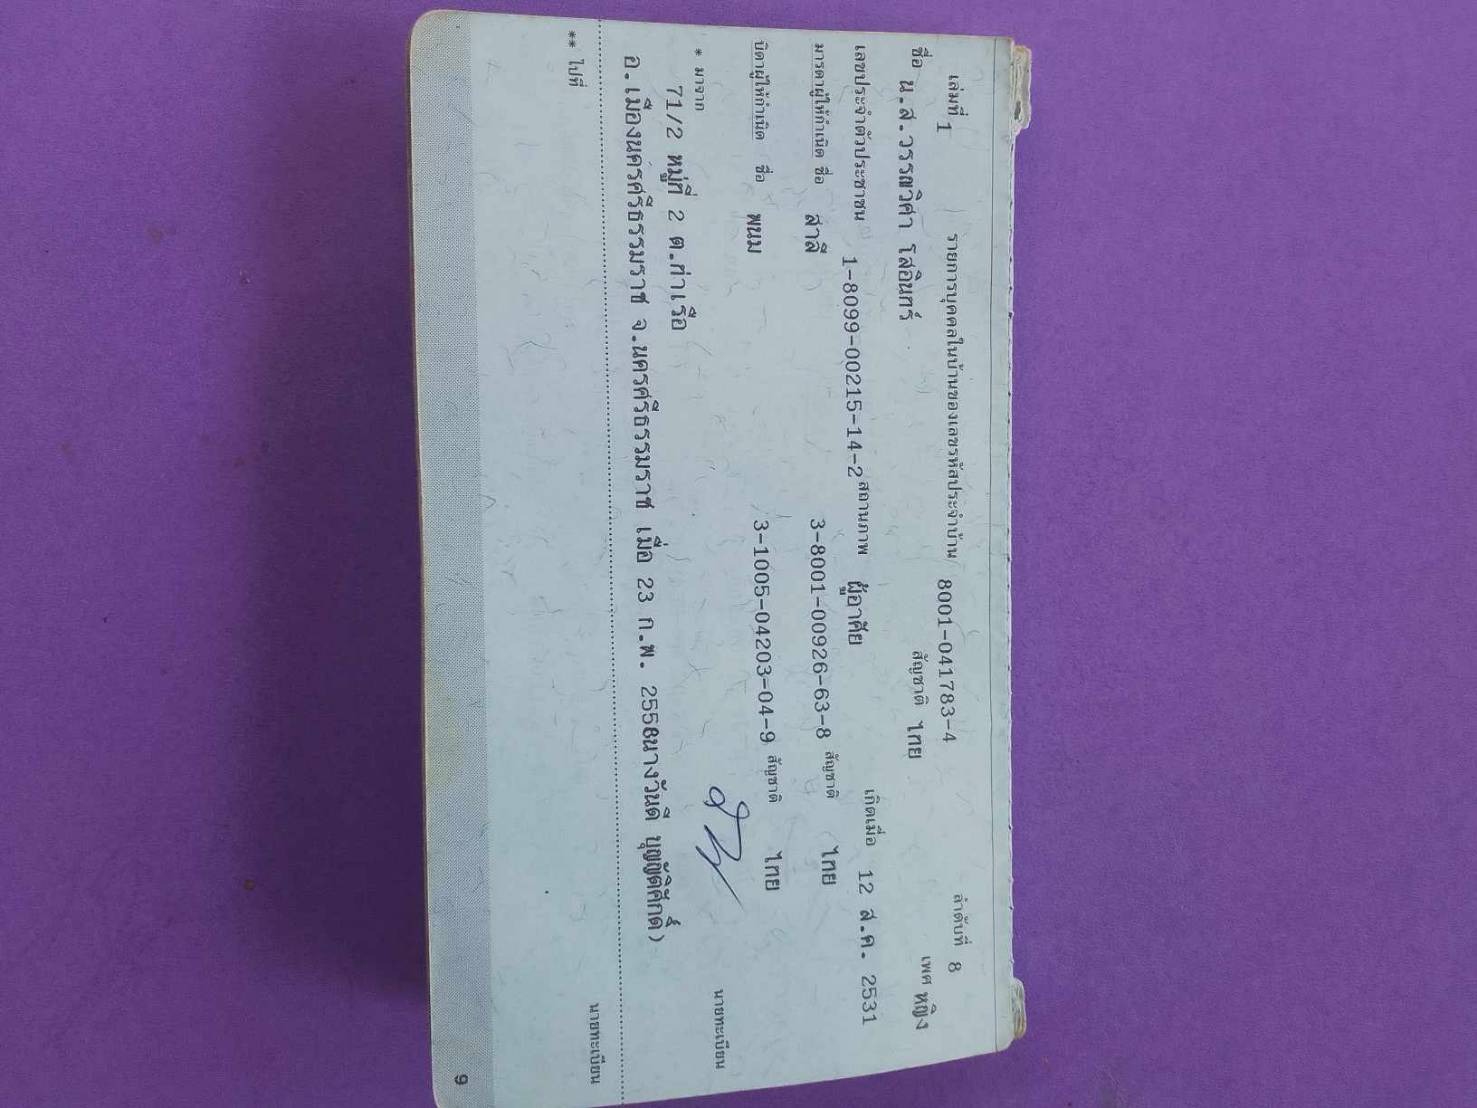 เล่มที่ 1 รายการบุคคลในบ้านของเลขรหัสประจำบ้าน 8001-041783-4 ลำดับที่ 8
ชื่อ น.ส.วรรณวิศา โสอินทร์ สัญชาติ ไทย เพศ หญิง
เลขประจำตัวประชาชน 1-8099-00215-14-2 สถานภาพ ผู้อาศัย เกิดเมื่อ 12 ส.ค. 2531
มารดาผู้ให้กำเนิด ชื่อ สาลี 3-8001-00926-63-8 สัญชาติ ไทย
บิดาผู้ให้กำเนิด ชื่อ พนม 3-1005-04203-04-9 สัญชาติ ไทย
* มาจาก
71/2 หมู่ที่ 2 ต.ท่าเรือ
นายทะเบียน
อ.เมืองนครศรีธรรมราช จ.นครศรีธรรมราช เมื่อ 23 ก.พ. นางวันดี บุญญัติศักดิ์)
** ไปที่
นายทะเบียน
9